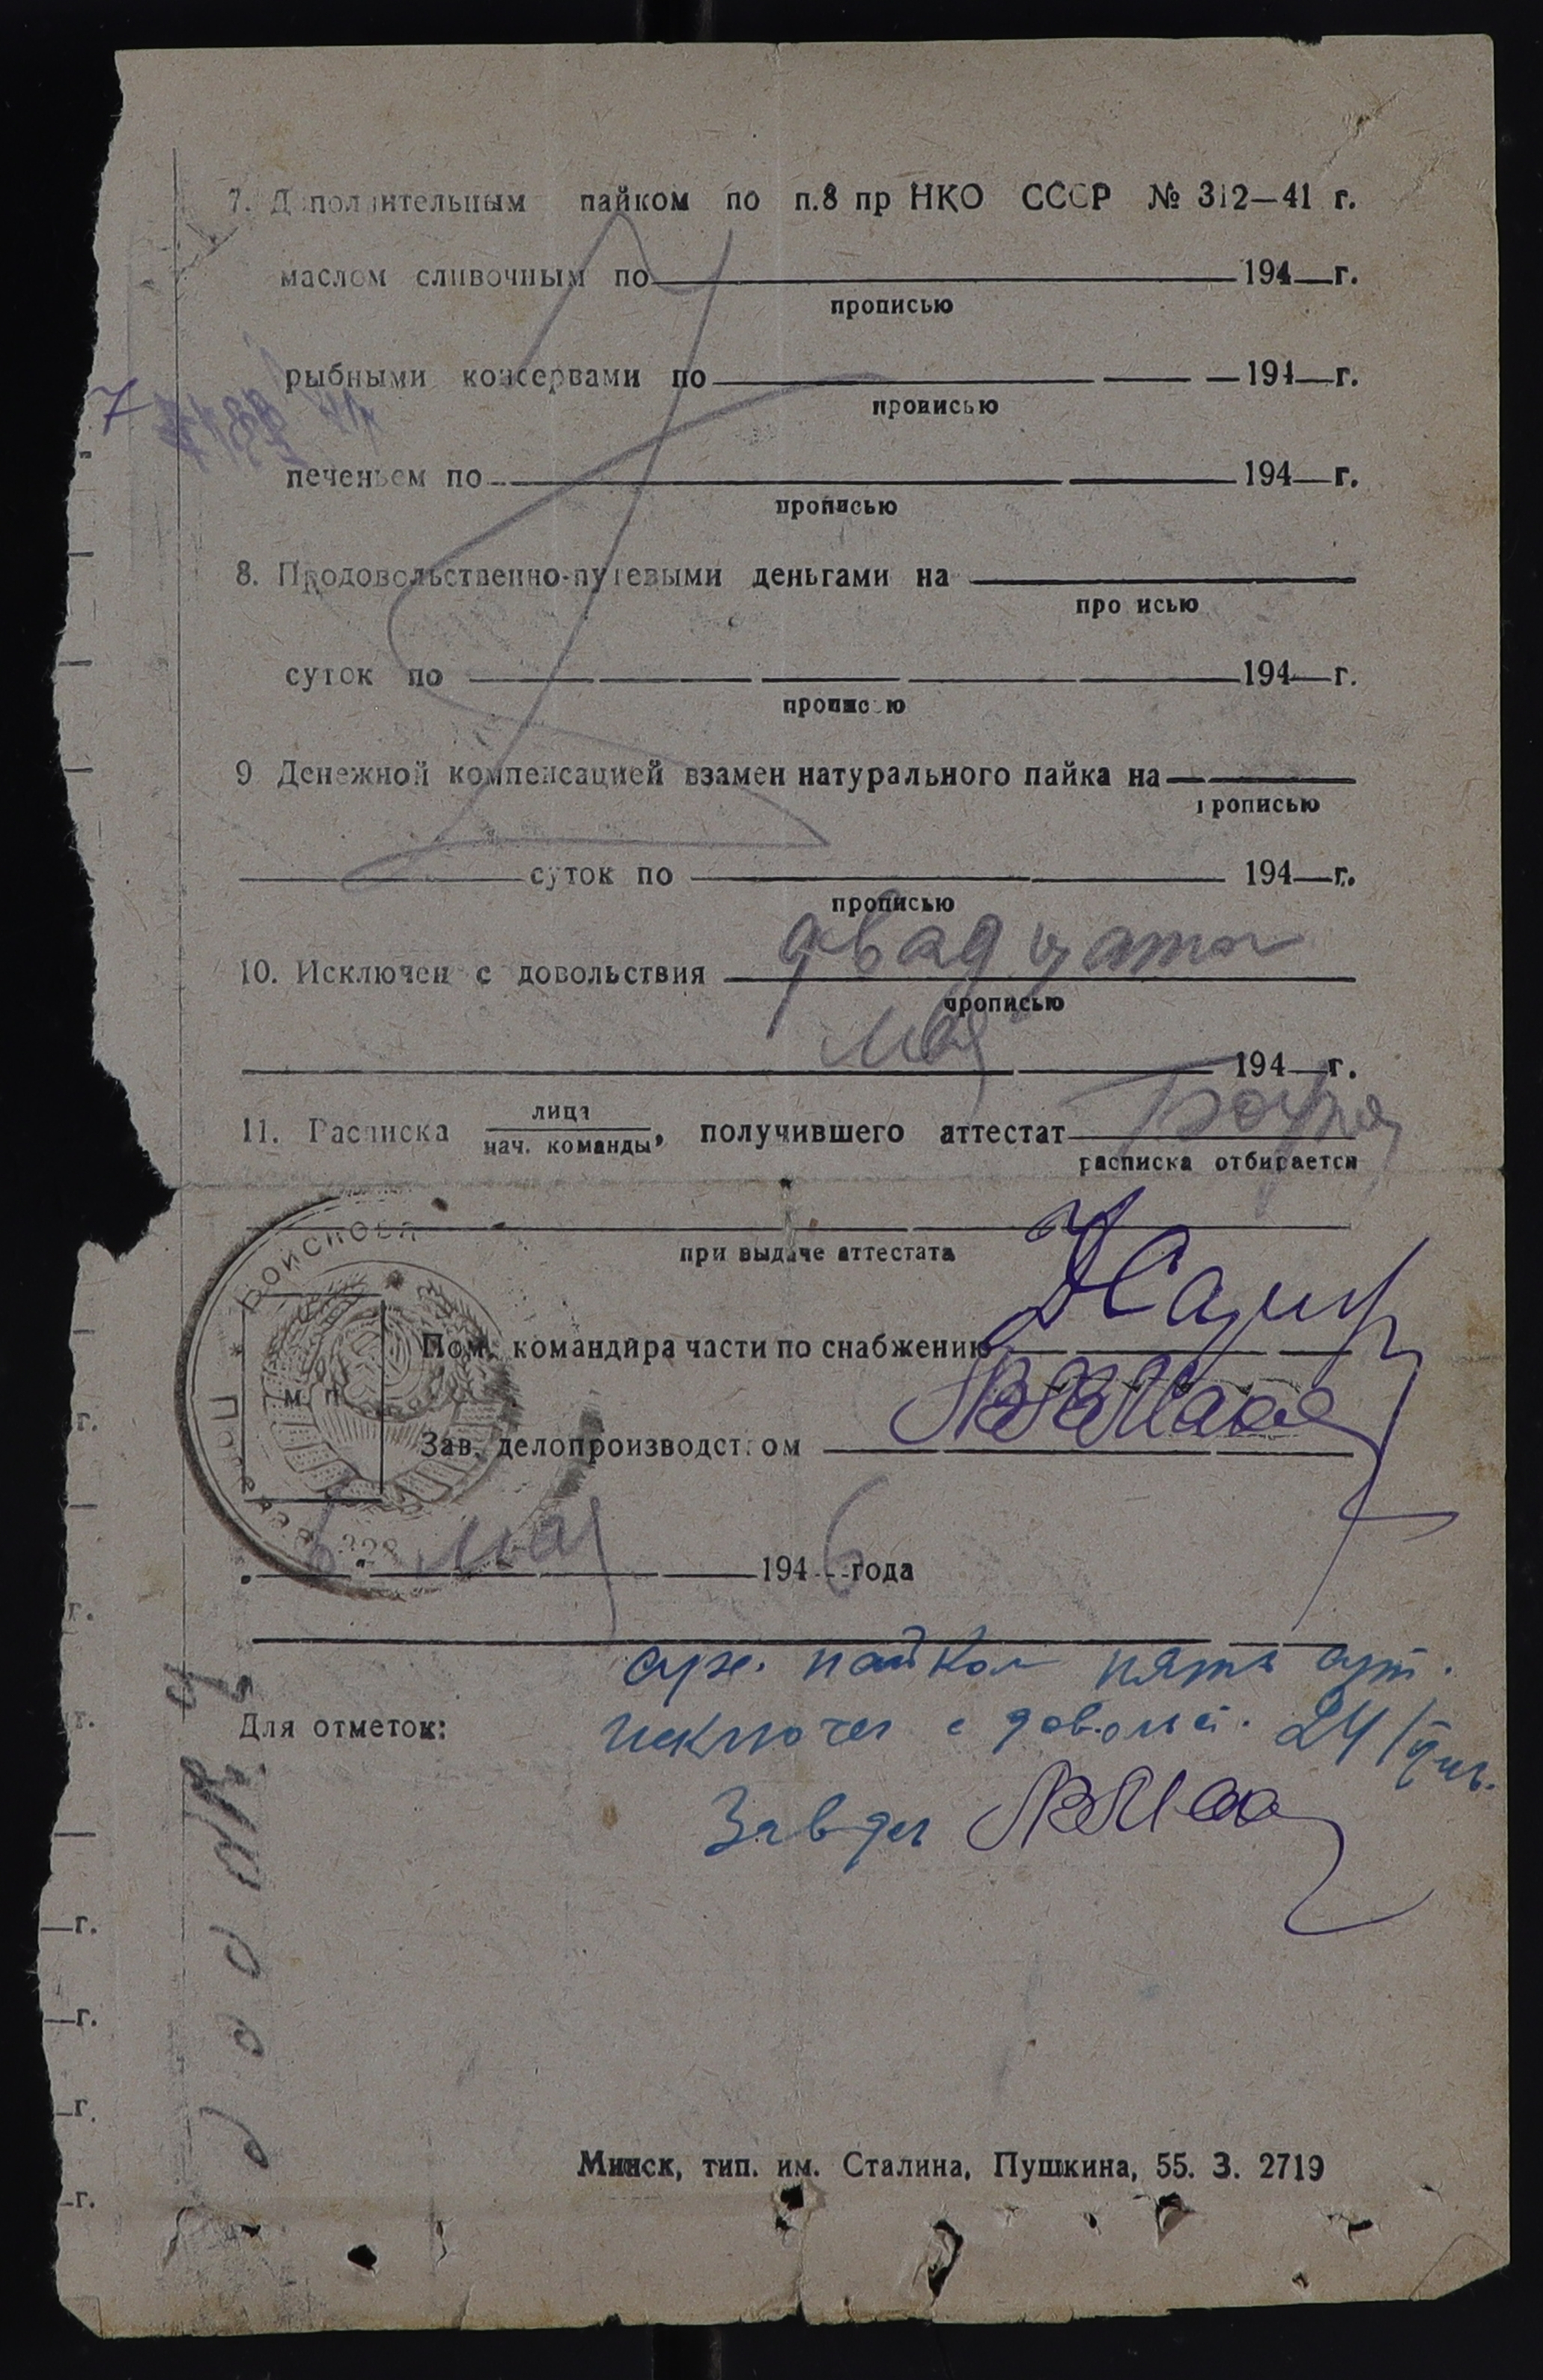 7. Дополнительным пайком по п.8 пр НКО СССР № 312—41 г.
маслом сливочным по 194 г.
прописью
рыбными консервами по 194 г.
прописью
7
печеньем по 194 г.
прописью
8. Продовольственно-путевыми деньгами на
про исью
суток по 194 г.
прописью
9 Денежной компенсацией взамен натурального пайка на
прописью
суток по 194 г.
прописью
10. Исключен с довольствия двадцатого
прописью
мая 194 г.
11. Расписка лица
нач. команды, получившего аттестат
расписка отбирается
при выдаче аттестата
Войсковая
Полевая
м п
Пом. командира части по снабжению
Зав. делопроизводством
6 мая 1946 года
сух. пайком пять сут.
Для отметок:
исключен с довольс. 24/
Зав дел
г.
г.
г.
г.
г.
г.
г.
Минск, тип. им. Сталина, Пушкина, 55. З. 2719